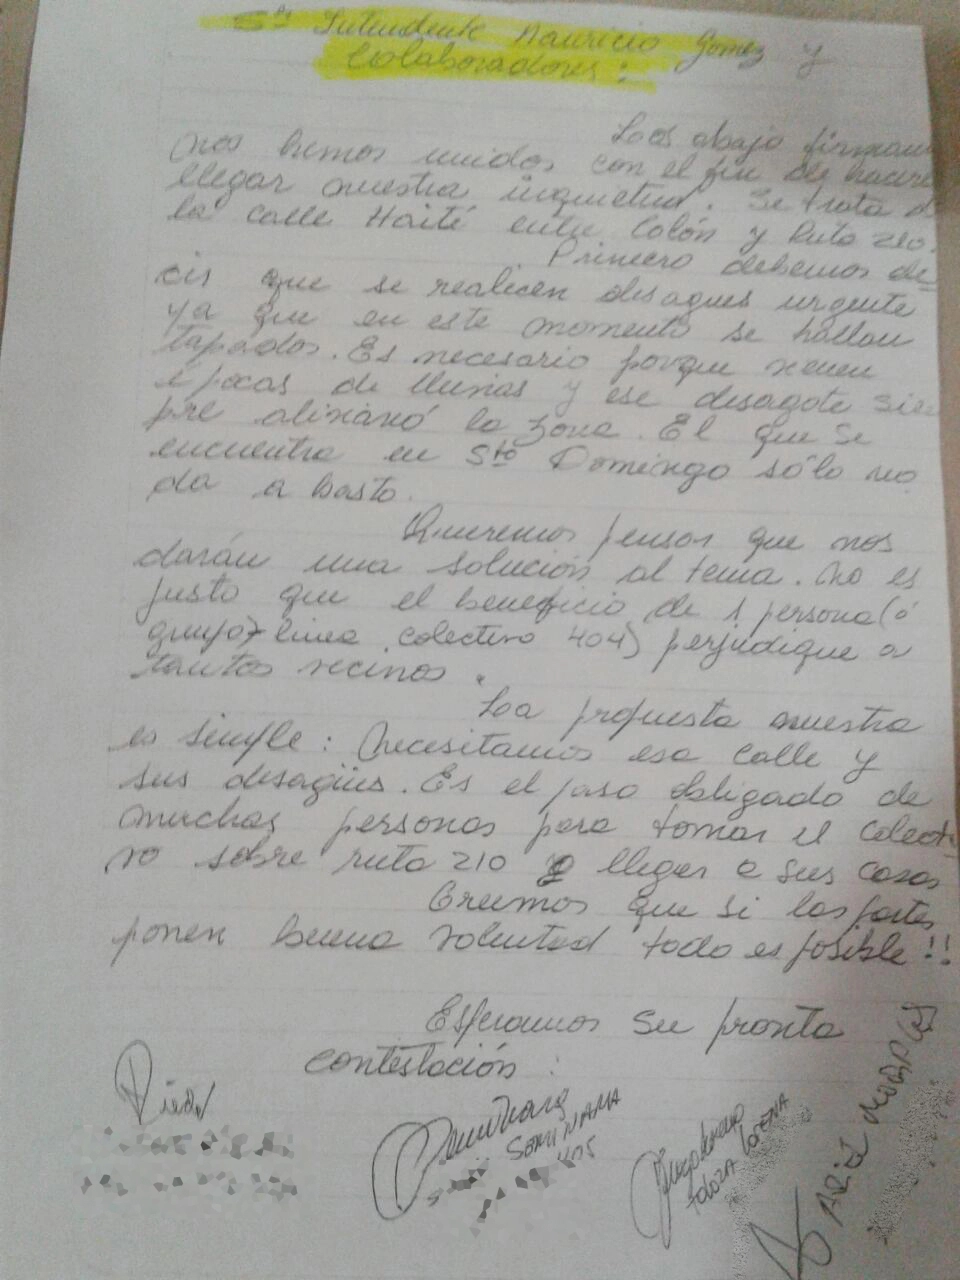 Sr Intendente Mauricio Gomez y
Colaboradores:
Los abajo firman
nos hemos unidos con el fin de hacer
llegar nuestra inquietud. Se trata d
la calle Haití entre Colón y Ruta 210.
Primero debemos de-
cir que se realicen desagues urgente
ya que en este momento se hallan
tapados. Es necesario porque vienen
épocas de lluvias y ese desagote siem
pre alivianó la zona. El que se
encuentra en Sto Domingo sólo no
da a basto.
Queremos pensar que nos
darán una solución al tema. No es
justo que el beneficio de 1 persona (ó
grupo línea colectivo 404) perjudique a
tantos vecinos.
La propuesta nuestra
es simple: Necesitamos esa calle y
sus desagües. Es el paso obligado de
muchas personas para tomar el colecti
vo sobre ruta 210 y llegar a sus casas
Creemos que si las partes
ponen buena voluntad todo es posible!!
Esperamos su pronta
contestación: